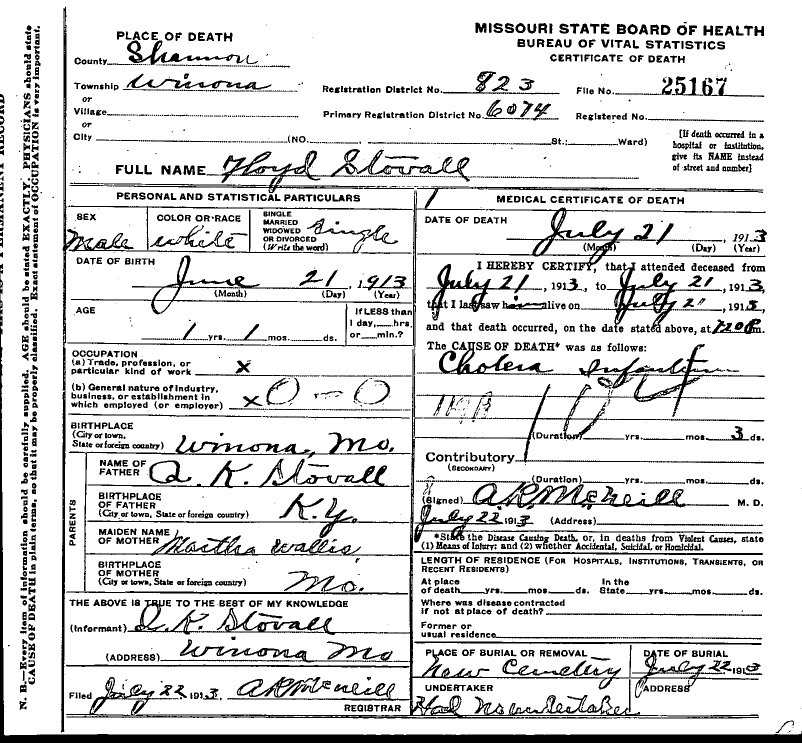 MISSOURI STATE BOARD OF HEALTH
BUREAU OF VITAL STATISTICS
CERTIFICATE OF DEATH
PLACE OF DEATH
County Shannon
Township Winona
or
Village
or
City (NO. St.; Ward)
Registration District No. 823 File No. 25167
Primary Registration District No. 6074 Registered No.
[If death occurred in a
hospital or institution,
give its NAME instead
of street and number]
FULL NAME Floyd Stovall
PERSONAL AND STATISTICAL PARTICULARS
SEX
Male
COLOR OR RACE
white
SINGLE
MARRIED
WIDOWED
OR DIVORCED
(Write the word)
Single
DATE OF BIRTH
June 21, 1913
(Month) (Day) (Year)
AGE
1 yrs. 1 mos. ds.
If LESS than
1 day, hrs.
or min.?
OCCUPATION
(a) Trade, profession, or
particular kind of work x
(b) General nature of industry,
business, or establishment in
which employed (or employer) x 0 — 0
BIRTHPLACE
(City or town,
State or foreign country) Winona, Mo.
PARENTS
NAME OF
FATHER A. K. Stovall
BIRTHPLACE
OF FATHER
(City or town, State or foreign country) K.y.
MAIDEN NAME
OF MOTHER Martha Wallis
BIRTHPLACE
OF MOTHER
(City or town, State or foreign country) Mo.
THE ABOVE IS TRUE TO THE BEST OF MY KNOWLEDGE
(Informant) K. Stovall
(ADDRESS) Winona Mo
Filed July 22 1913 A R McNeill
REGISTRAR
MEDICAL CERTIFICATE OF DEATH
DATE OF DEATH
July 21, 1913
(Month) (Day) (Year)
I HEREBY CERTIFY, that I attended deceased from
July 21, 1913, to July 21, 1913,
that I last saw him alive on July 21, 1913,
and that death occurred, on the date stated above, at m.
The CAUSE OF DEATH* was as follows:
Cholera Infantum
104
(Duration) yrs. mos. 3 ds.
Contributory
(SECONDARY)
(Duration) yrs. mos. ds.
(Signed) A.R. McNeill M. D.
July 22 1913 (Address)
*State the Disease Causing Death, or, in deaths from Violent Causes, state
(1) Means of Injury; and (2) whether Accidental, Suicidal, or Homicidal.
LENGTH OF RESIDENCE (FOR HOSPITALS, INSTITUTIONS, TRANSIENTS, OR
RECENT RESIDENTS)
At place
of death yrs. mos. ds.
In the
State yrs. mos. ds.
Where was disease contracted
if not at place of death?
Former or
usual residence
PLACE OF BURIAL OR REMOVAL
New Cemetery
DATE OF BURIAL
July 22 1913
UNDERTAKER
Had no undertaker
ADDRESS
N. B.—Every item of information should be carefully supplied. AGE should be stated EXACTLY. PHYSICIANS should state
CAUSE OF DEATH in plain terms, so that it may be properly classified. Exact statement of OCCUPATION is very important.